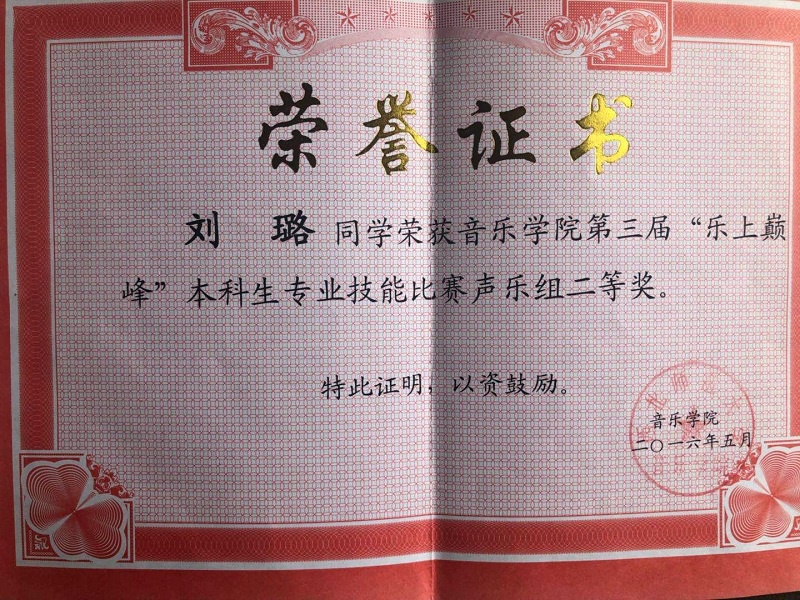 荣誉证书
刘 璐 同学荣获音乐学院第三届“乐上巅
峰”本科生专业技能比赛声乐组二等奖。
特此证明，以资鼓励。
音乐学院
二〇一六年五月